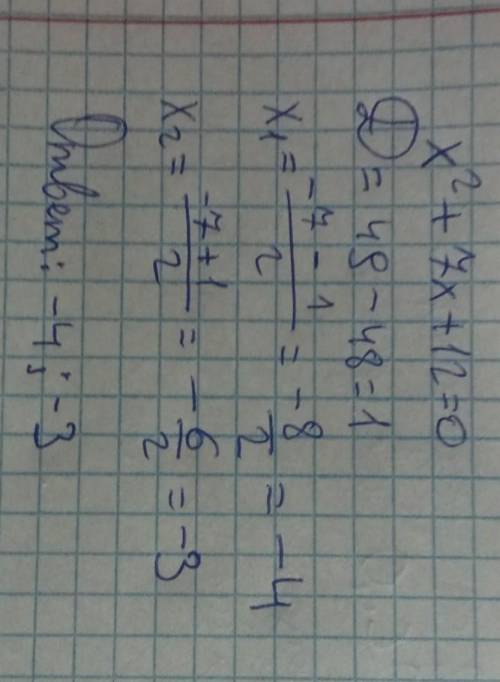 x² + 7x + 12 = 0
D = 49 - 48 = 1
x₁ = (-7 - 1)/2 = -8/2 = -4
x₂ = (-7 + 1)/2 = -6/2 = -3
Ответ: -4; -3